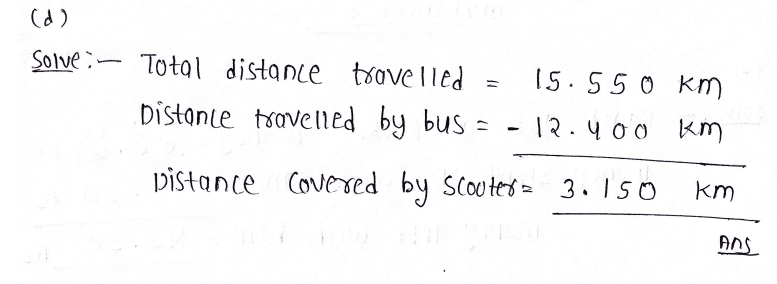 (d)
Solve :- Total distance travelled = 15.550 km
Distance travelled by bus = - 12.400 km
Distance Covered by Scooter = 3.150 km
Ans